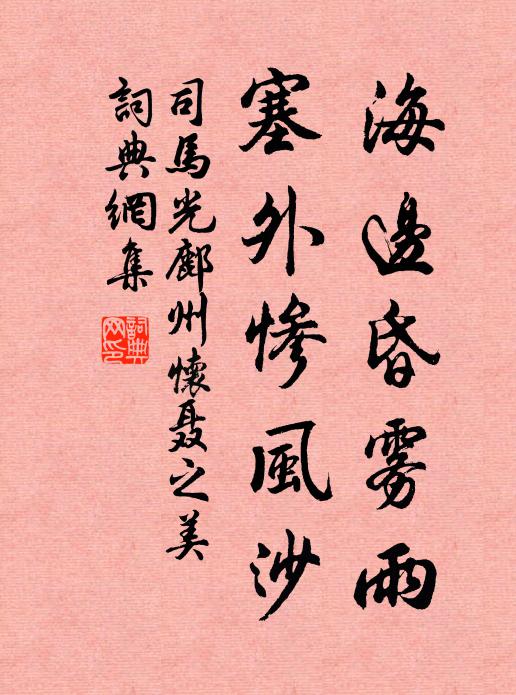 海邊昏霧雨
塞外慘風沙
司馬光鄜州懷聶之美
詞典網集
詞典網印